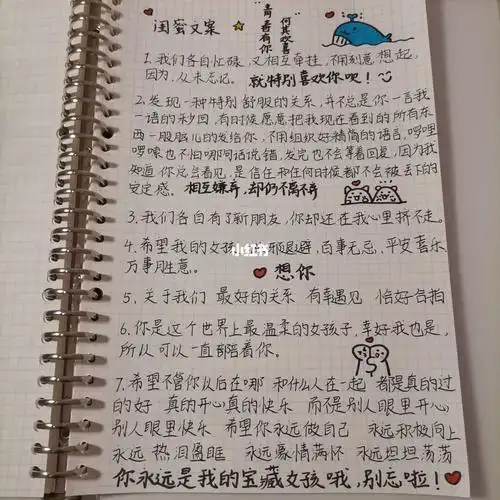 闺蜜文案
青春有你
何其欢喜
1.我们各自忙碌,又相互牵挂,不用刻意想起,
因为,从未忘记。 就特别喜欢你呗!
2.发现一种特别舒服的关系,并不总是你一言我
一语的秒回,有时候愿意把我现在看到的所有东
西一股脑儿的发给你,不用组织好精简的语言,啰哩
啰嗦也不怕哪句话说错,发完也不会等着回复,因为我
知道你总会看见,是信任和任何时候都不会被丢下的
安定感。 相互嫌弃,却仍不离不弃
3.我们各自有了新朋友,你却还在我心里挤不走。
4.希望我的女孩 邪退避,百事无忌,平安喜乐
万事胜意。
小红书
想你
5、关于我们 最好的关系 有幸遇见 恰好合拍
6.你是这个世界上最温柔的女孩子,幸好我也是,
所以可以一直都陪着你。
7.希望不管你以后在哪 和什么人在一起 都是真的过
的好 真的开心真的快乐 而不是别人眼里开心
别人眼里快乐 希望你永远做自己 永远积极向上
永远 热泪盈眶 永远豪情满怀 永远坦坦荡荡
你永远是我的宝藏女孩哦,别忘啦!